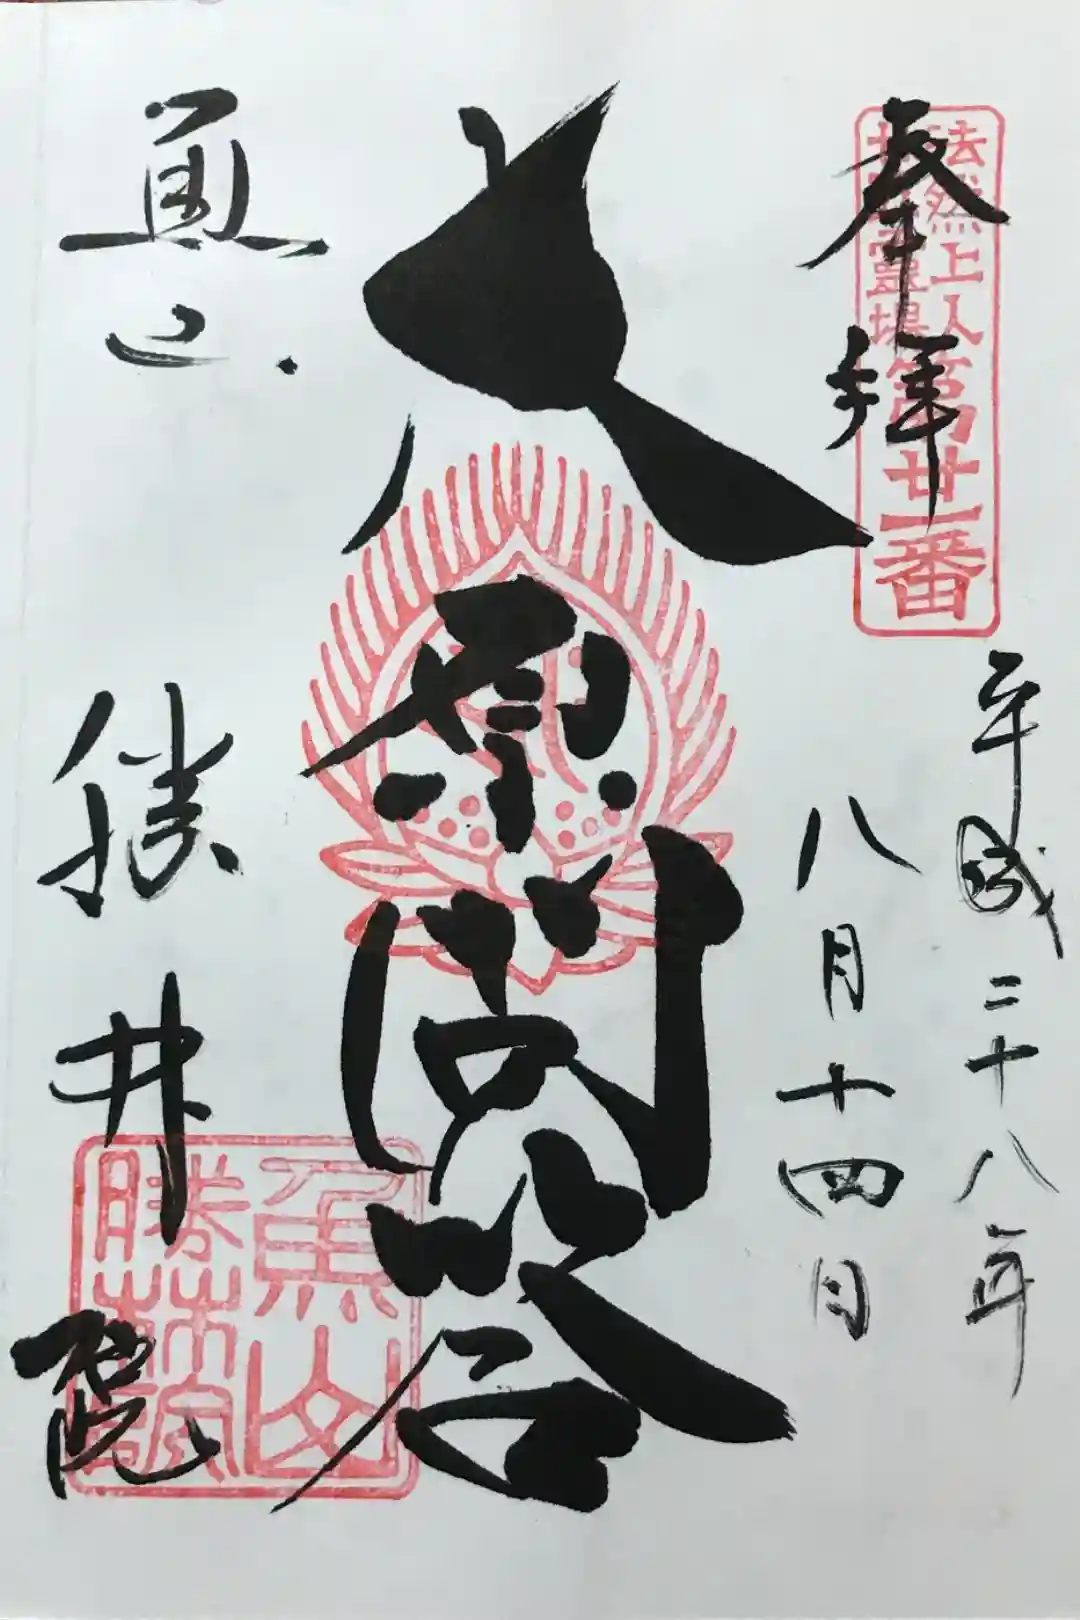 奉拝
法然上人
廿五霊場
第廿一番
平成二十八年
八月十四日
大原問答
魚山
勝林院
魚山
勝林院